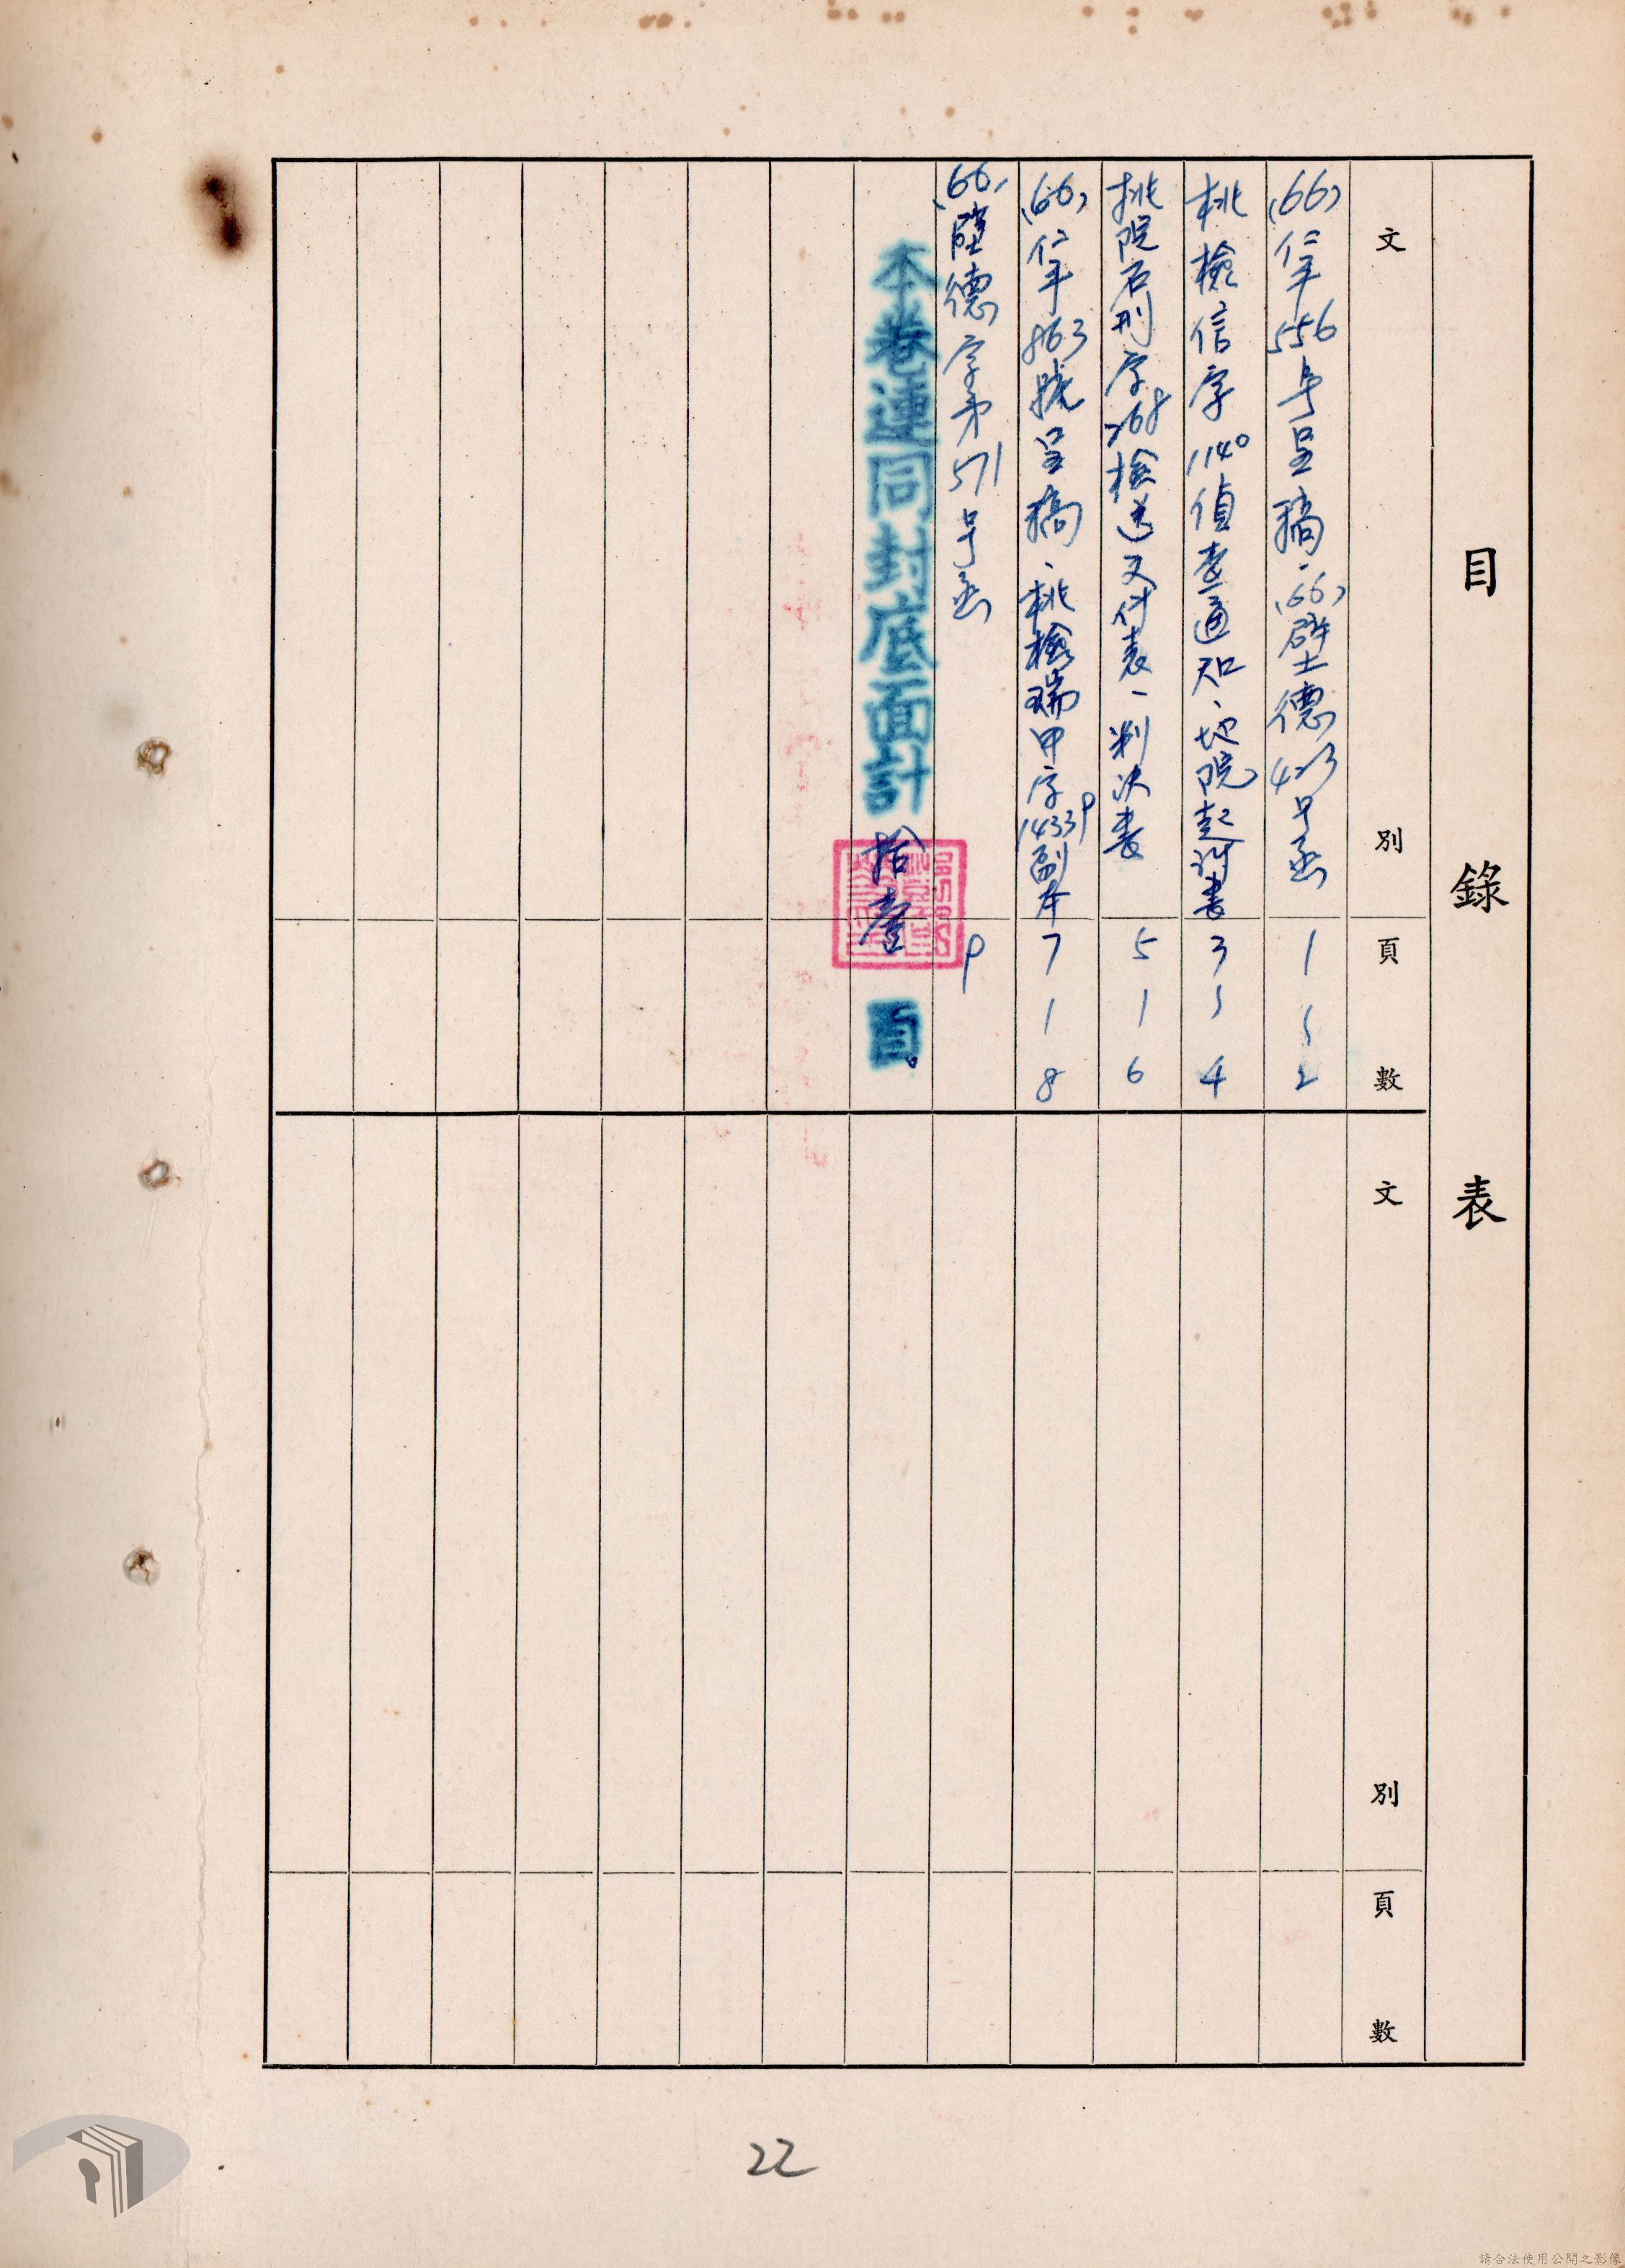 目錄表
文別 頁數
(66)信年556号呈稿、(66)壁德423号函 1~2
桃檢信字1140偵查通知、地院起訴書 3~4
桃院石刑字268檢送交付表、判決書 5~6
(66)信年863號呈稿、桃檢瑞甲字14339副本 7~8
(66)壁德字第571号函 9
本卷連同封底面計拾壹頁。
文別 頁數
22
請合法使用公開之影像